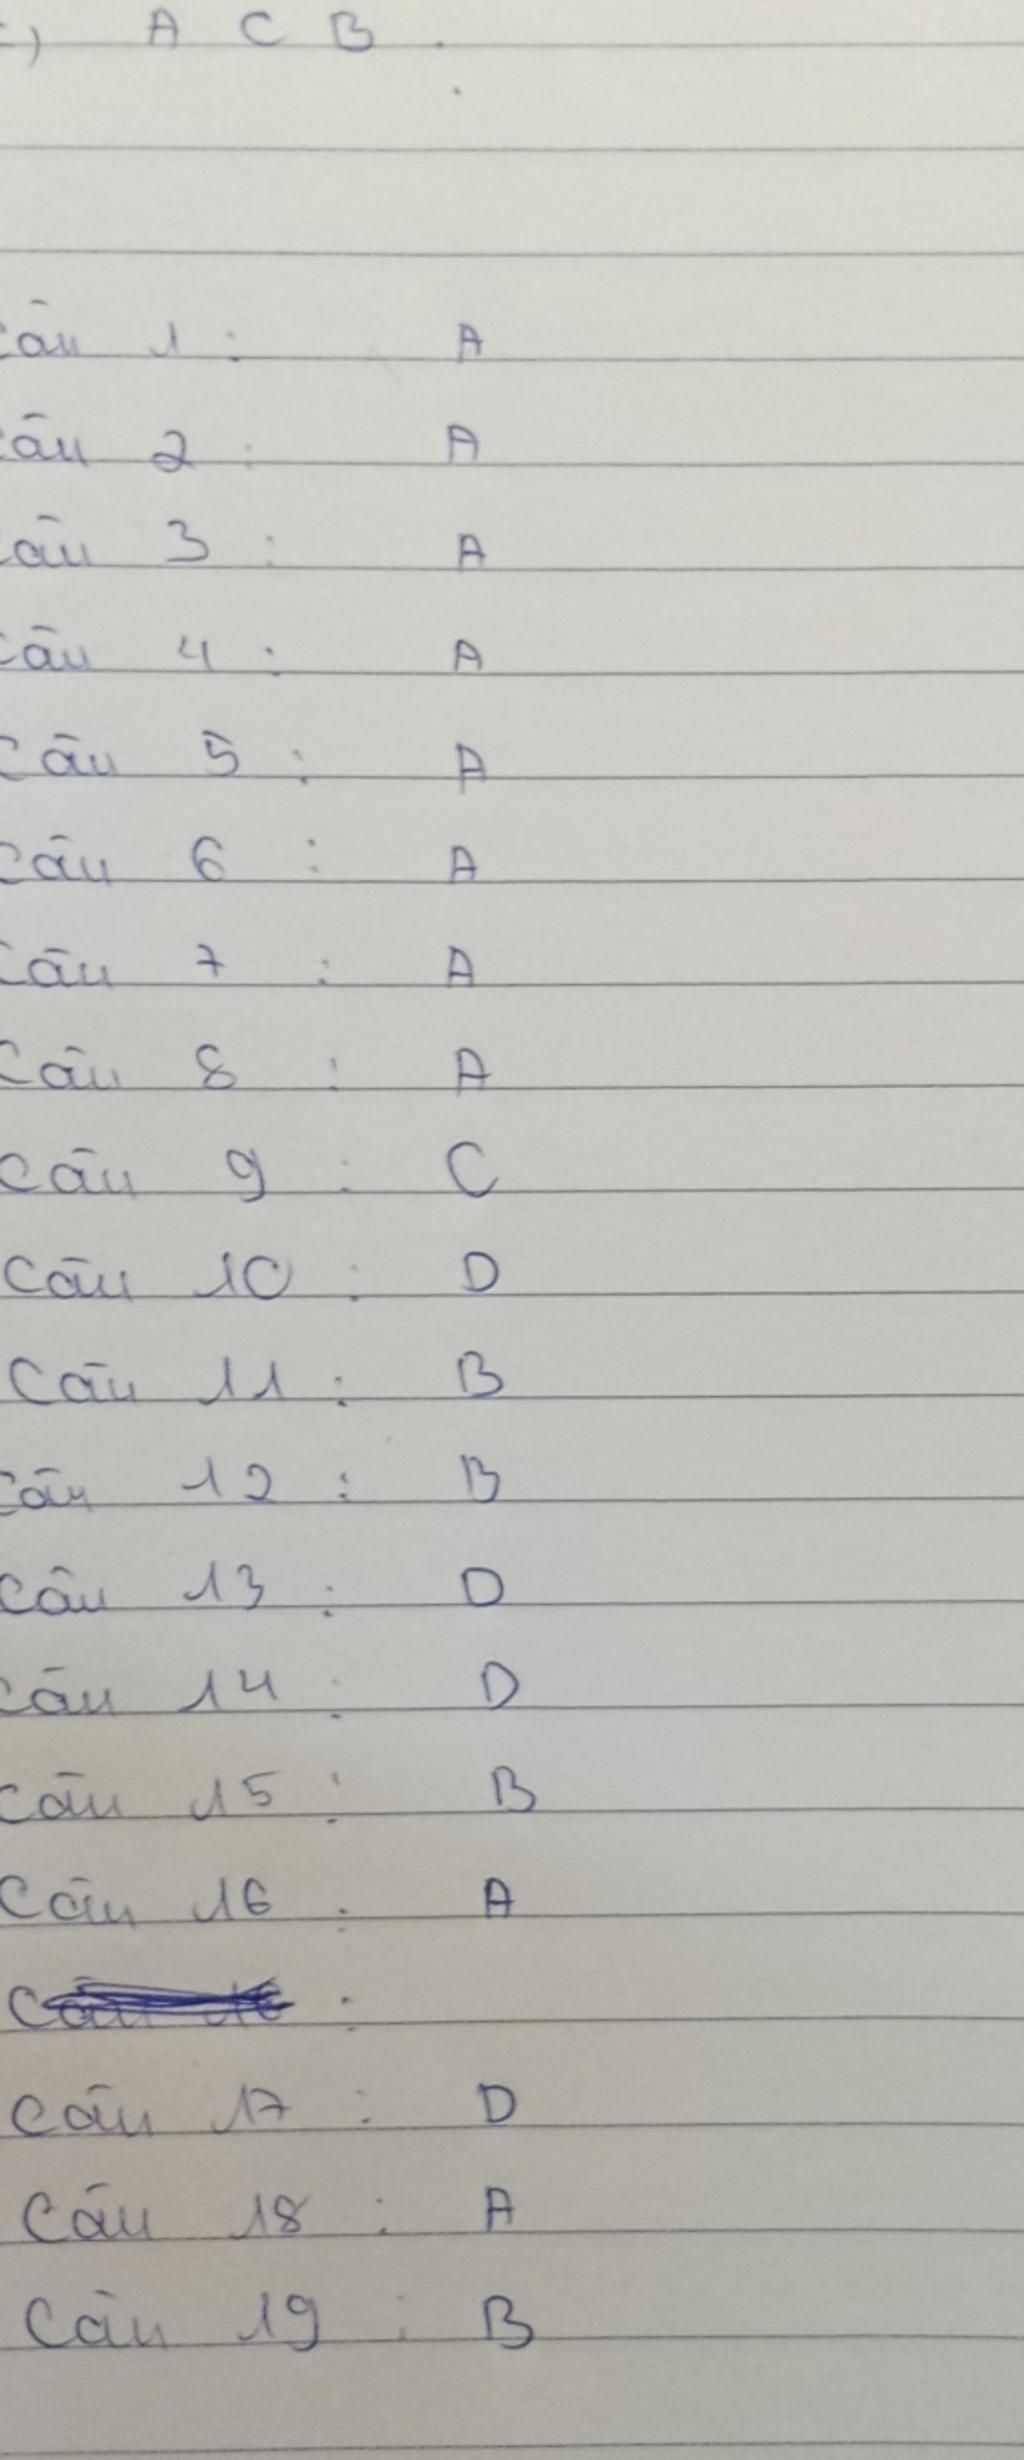 c) A C B.
Câu 1: A
Câu 2: A
Câu 3: A
Câu 4: A
Câu 5: A
Câu 6: A
Câu 7: A
Câu 8: A
Câu 9: C
Câu 10: D
Câu 11: B
Câu 12: B
Câu 13: D
Câu 14: D
Câu 15: B
Câu 16: A
Câu 17: D
Câu 18: A
Câu 19: B